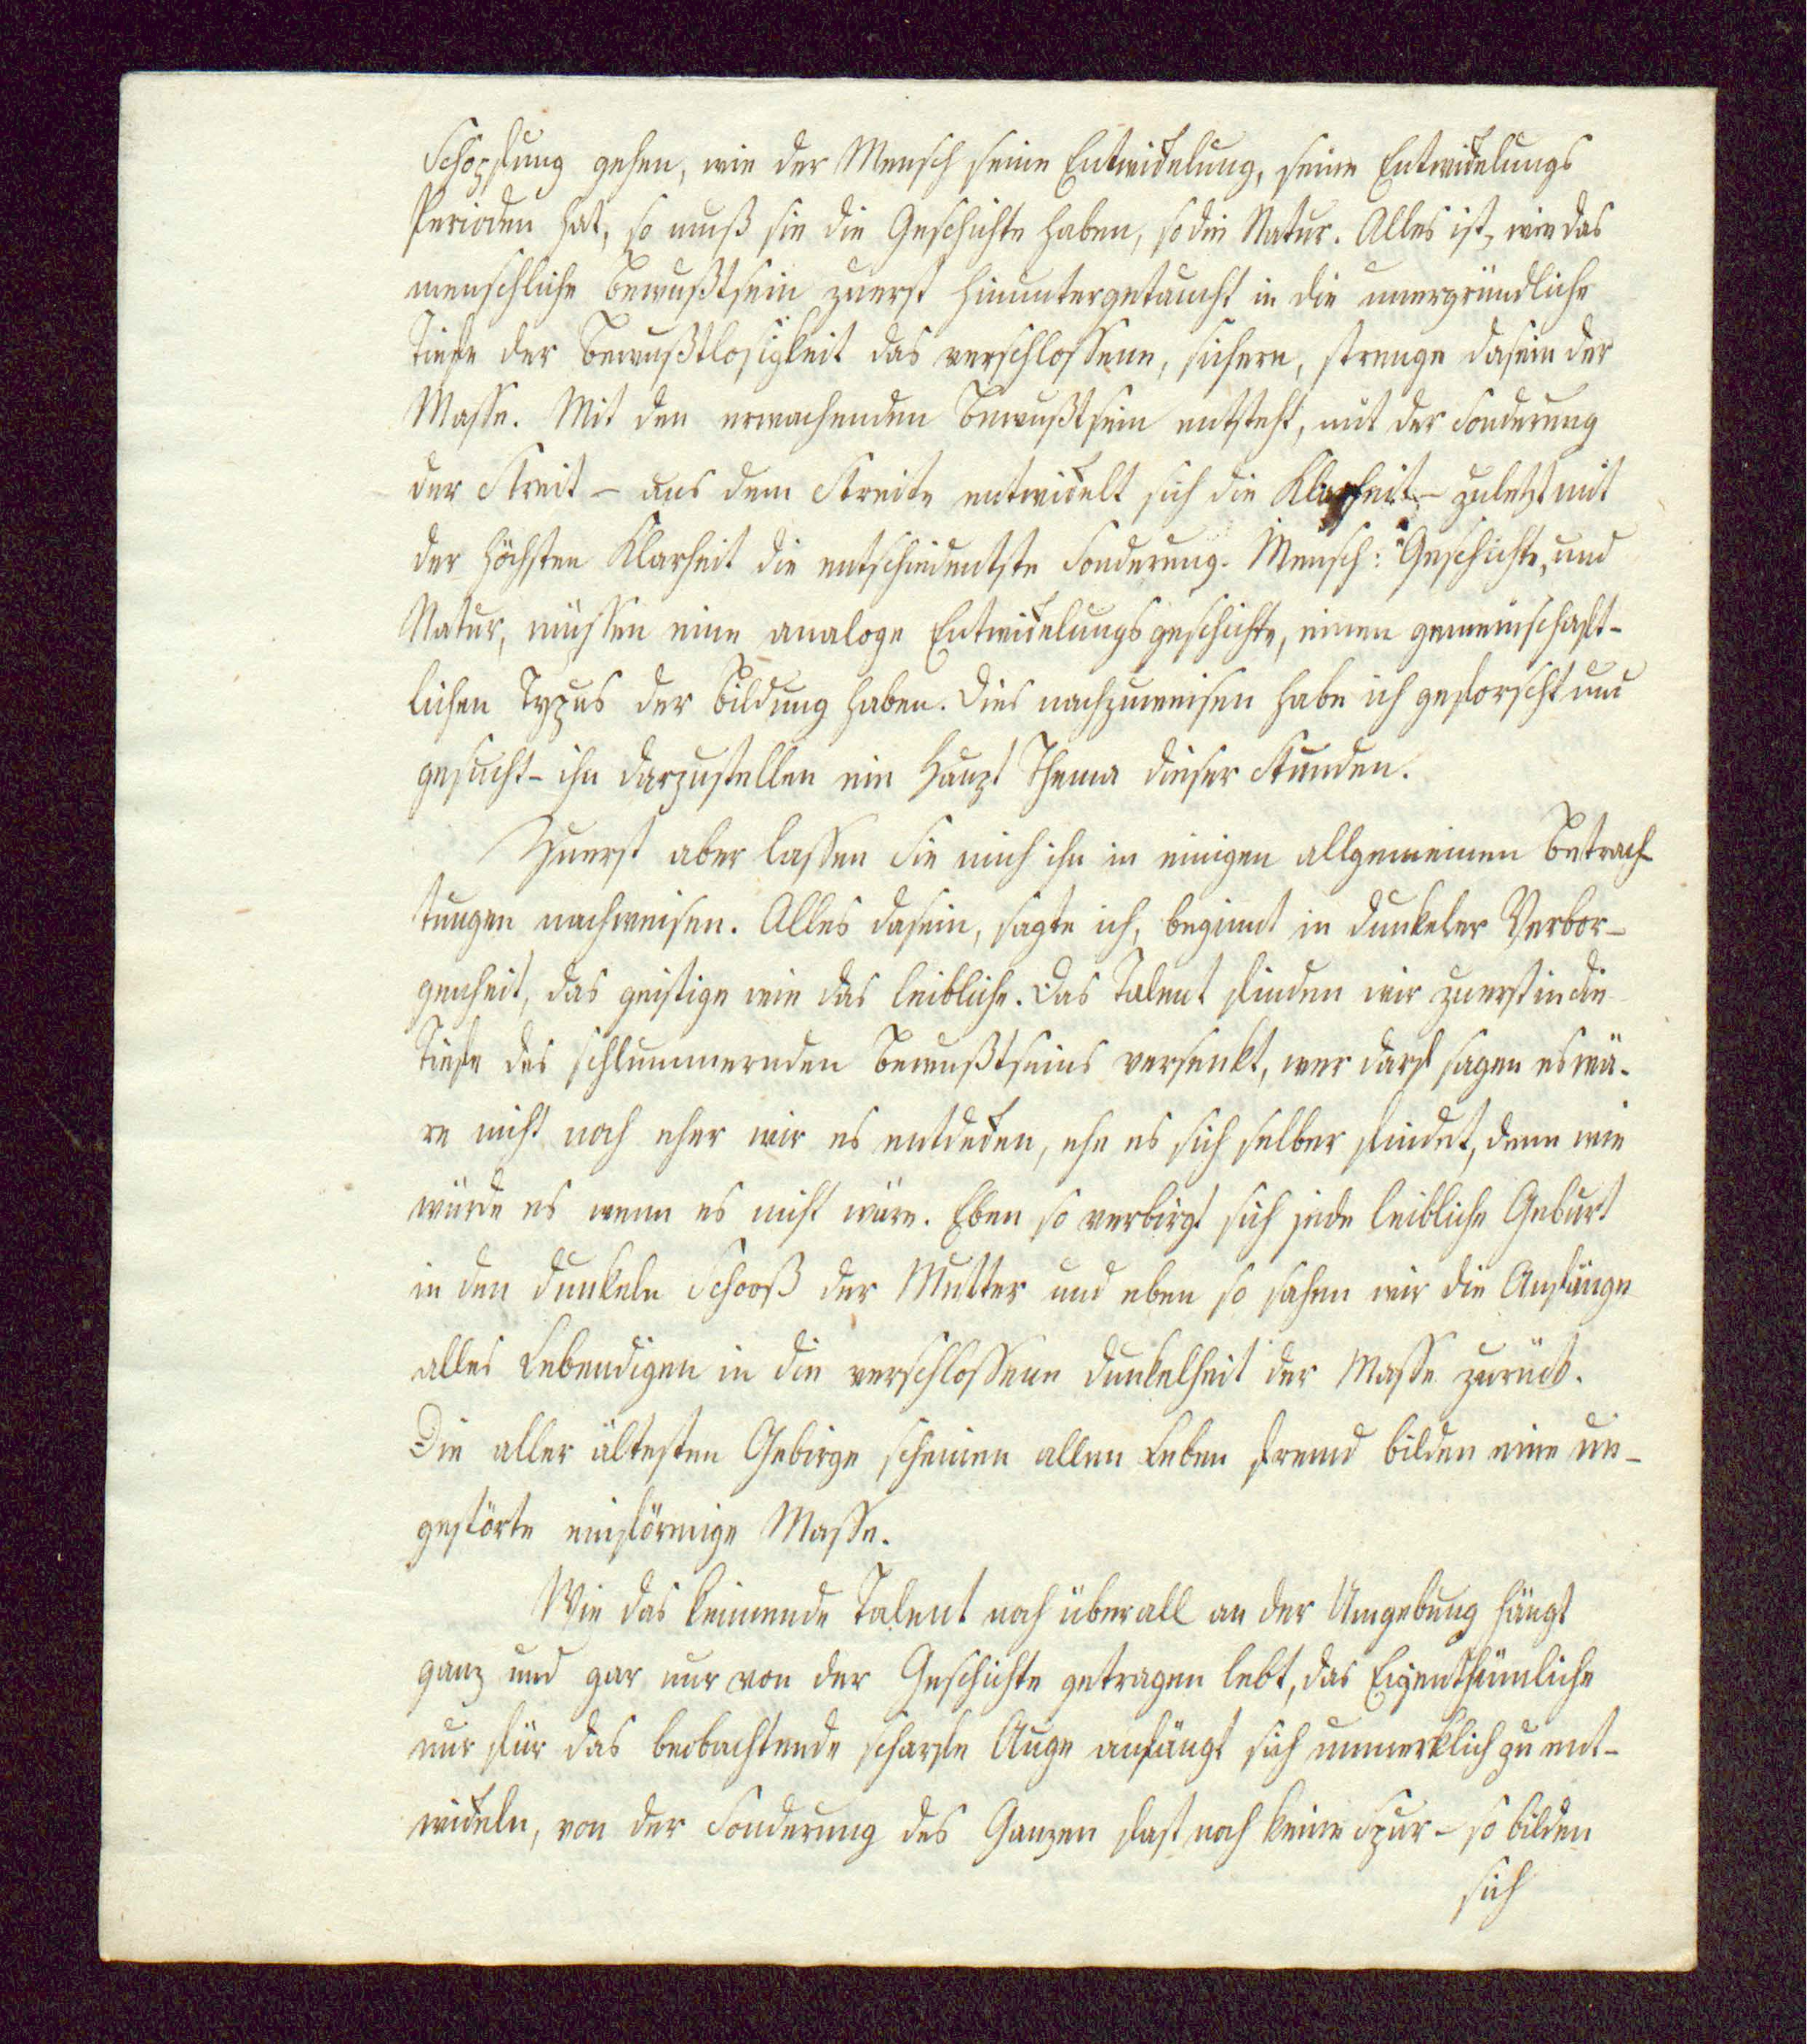 Schöpfung gehen, wie der Mensch seine Entwickelung, seine Entwickelungs
Perioden hat, so muß sie die Geschichte haben, so die Natur. Alles ist, wie das
menschliche Bewußtsein zuerst hinuntergetaucht in die unergründliche
Tiefe der Bewußtlosigkeit das verschlossene, sichere, strenge Dasein der
Masse. Mit den erwachenden Bewußtsein entsteht, mit der Sonderung
der Streit – aus dem Streite entwickelt sich die Klarheit – zuletzt mit
der höchsten Klarheit die entschiedentste Sonderung. Mensch: Geschichte, und
Natur, müssen eine analoge Entwickelungsgeschichte, einen gemeinschaft-
lichen Typus der Bildung haben. Dies nachzuweisen habe ich geforscht und
gesucht – ihn darzustellen ein Haupt Thema dieser Stunden.
Zuerst aber lassen Sie mich ihn in einigen allgemeinen Betrach-
tungen nachweisen. Alles Dasein, sagte ich, beginnt in dunkeler Verbor-
genheit, das geistige wie das leibliche. Das Talent finden wir zuerst in die
Tiefe des schlummernden Bewußtseins versenkt, wer darf sagen es wä-
re nicht noch eher wir es entdecken, ehe es sich selber findet, denn wie
würde es wenn es nicht wäre. Eben so verbirgt sich jede leibliche Geburt
in den dunkeln Schooß der Mutter und eben so sahen wir die Anfänge
alles Lebendigen in die verschlossene Dunkelheit der Masse zurück.
Die aller ältesten Gebirge scheinen allen Leben fremd bilden eine un-
gestörte einförmige Masse.
Wie das keimende Talent noch überall an der Umgebung hängt
ganz und gar nur von der Geschichte getragen lebt, das Eigenthümliche
nur für das beobachtende scharfe Auge anfängt sich unmerklich zu ent-
wickeln, von der Sonderung des Ganzen fast noch keine Spur – so bilden
sich